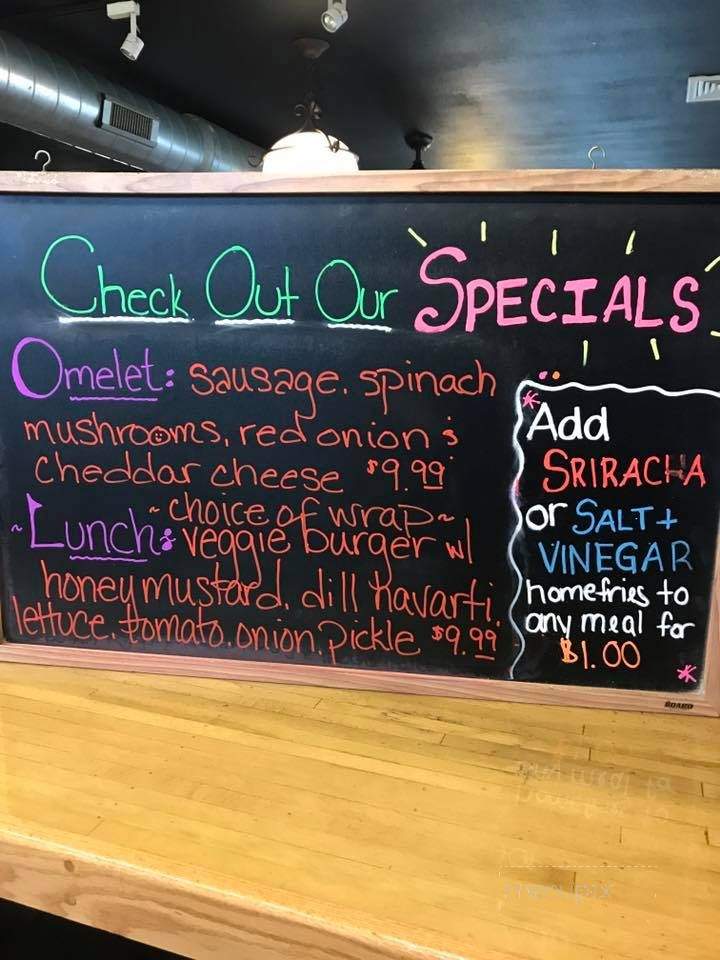 Check Out Our SPECIALS
Omelet: sausage, spinach
mushrooms, red onion &
cheddar cheese $9.99
Lunch: ~choice of wrap~
veggie burger w/
honey mustard, dill havarti,
lettuce, tomato, onion, pickle $9.99
*Add
SRIRACHA
or SALT +
VINEGAR
homefries to
any meal for
$1.00 *
BOARD
menupix